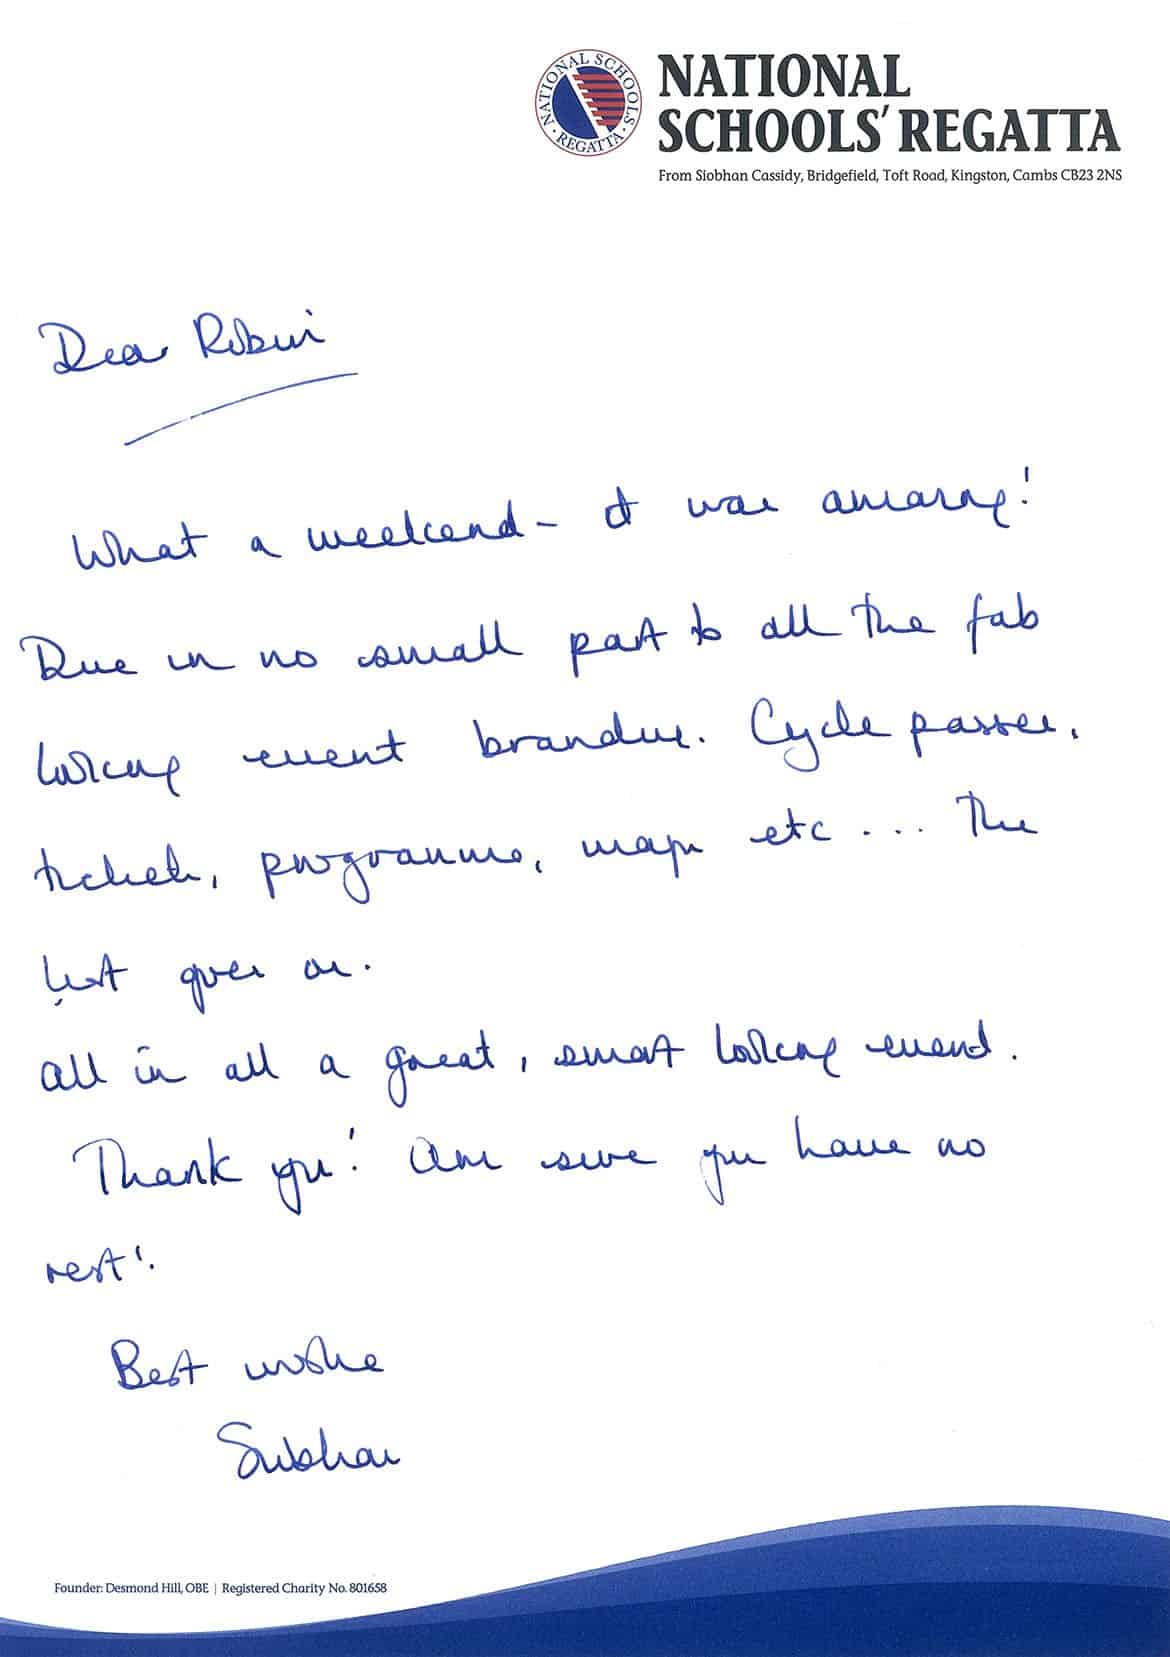 NATIONAL SCHOOLS' REGATTA
NATIONAL
SCHOOLS' REGATTA
From Siobhan Cassidy, Bridgefield, Toft Road, Kingston, Cambs CB23 2NS
Dear Robin
What a weekend - it was amazing!
Due in no small part to all the fab
looking event branding. Cycle passes,
tickets, programme, maps etc ... The
list goes on.
All in all a great, smart looking event.
Thank you! Am sure you have no
rest!
Best wishes
Siobhan
Founder: Desmond Hill, OBE | Registered Charity No. 801658